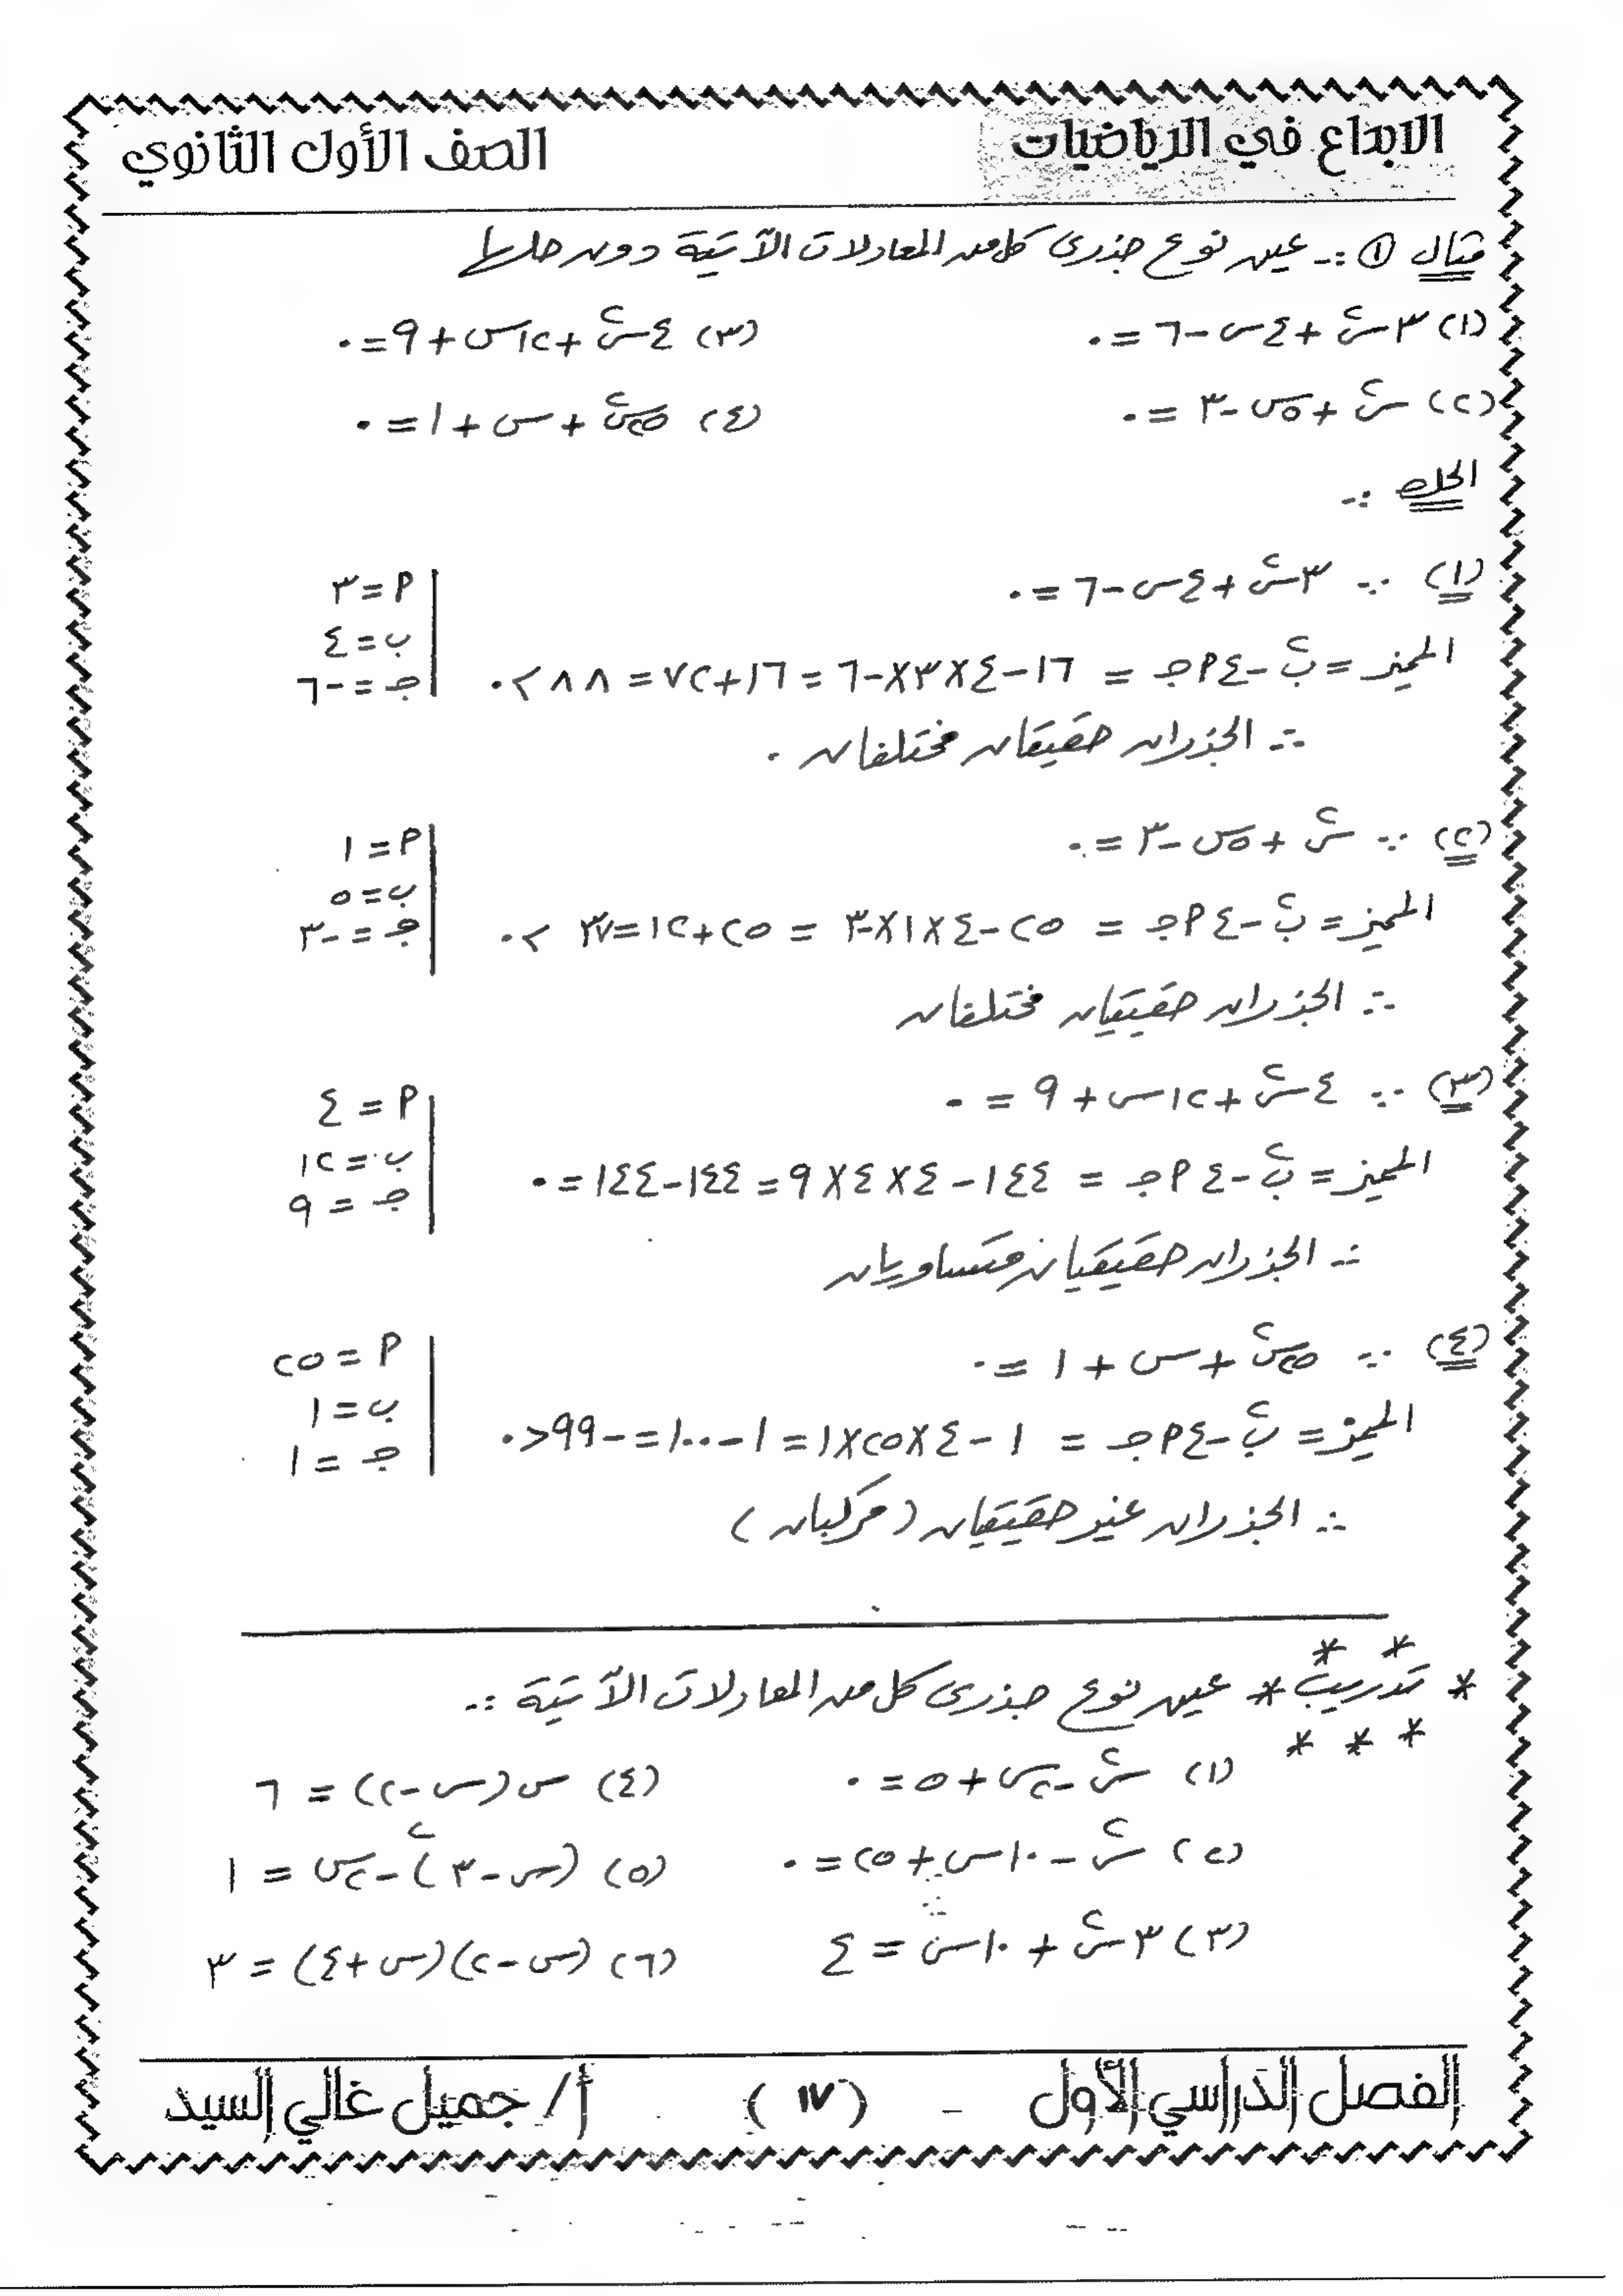 الابداع في الرياضيات
الصف الأول الثانوي
مثال ① :- عين نوع جذرى كل من المعادلات الآتية دون حلها
(١) ٣س٢ + ٤س - ٦ = ٠
(٣) ٤س٢ + ١٢س + ٩ = ٠
(٢) س٢ + ٥س - ٣ = ٠
(٤) ٢٥س٢ + س + ١ = ٠
الحل :-
(١) ∵ ٣س٢ + ٤س - ٦ = ٠
المميز = ب٢ - ٤ م جـ = ١٦ - ٤ × ٣ × -٦ = ١٦ + ٧٢ = ٨٨ > ٠
م = ٣
ب = ٤
جـ = -٦
∴ الجذران حقيقان مختلفان .
(٢) ∵ س٢ + ٥س - ٣ = ٠
المميز = ب٢ - ٤ م جـ = ٢٥ - ٤ × ١ × -٣ = ٢٥ + ١٢ = ٣٧ > ٠
م = ١
ب = ٥
جـ = -٣
∴ الجذران حقيقيان مختلفان
(٣) ∵ ٤س٢ + ١٢س + ٩ = ٠
المميز = ب٢ - ٤ م جـ = ١٤٤ - ٤ × ٤ × ٩ = ١٤٤ - ١٤٤ = ٠
م = ٤
ب = ١٢
جـ = ٩
∴ الجذران حقيقيان متساويان
(٤) ∵ ٢٥س٢ + س + ١ = ٠
المميز = ب٢ - ٤ م جـ = ١ - ٤ × ٢٥ × ١ = ١ - ١٠٠ = -٩٩ < ٠
م = ٢٥
ب = ١
جـ = ١
∴ الجذران غير حقيقيان (مركبان)
* تدريب * عين نوع جذرى كل من المعادلات الآتية :-
(١) س٢ - ٢س + ٥ = ٠
(٤) س(س - ٢) = ٦
(٢) س٢ - ١٠س + ٢٥ = ٠
(٥) (س - ٣)٢ - ٢س = ١
(٣) ٣س٢ + ١٠س = ٤
(٦) (س - ٢)(س + ٤) = ٣
الفصل الدراسي الأول - (١٧) أ/ جميل غالي السيد